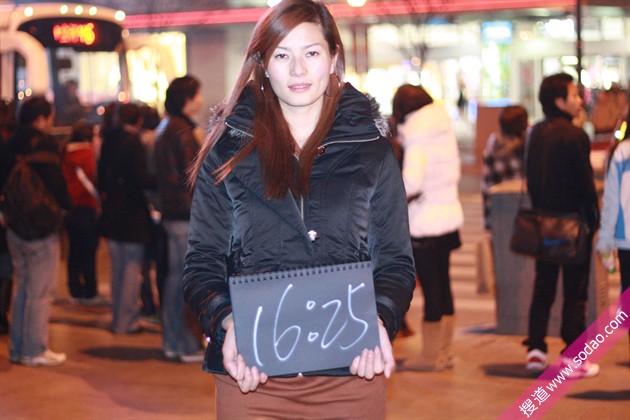 16:25
搜道www.sodao.com